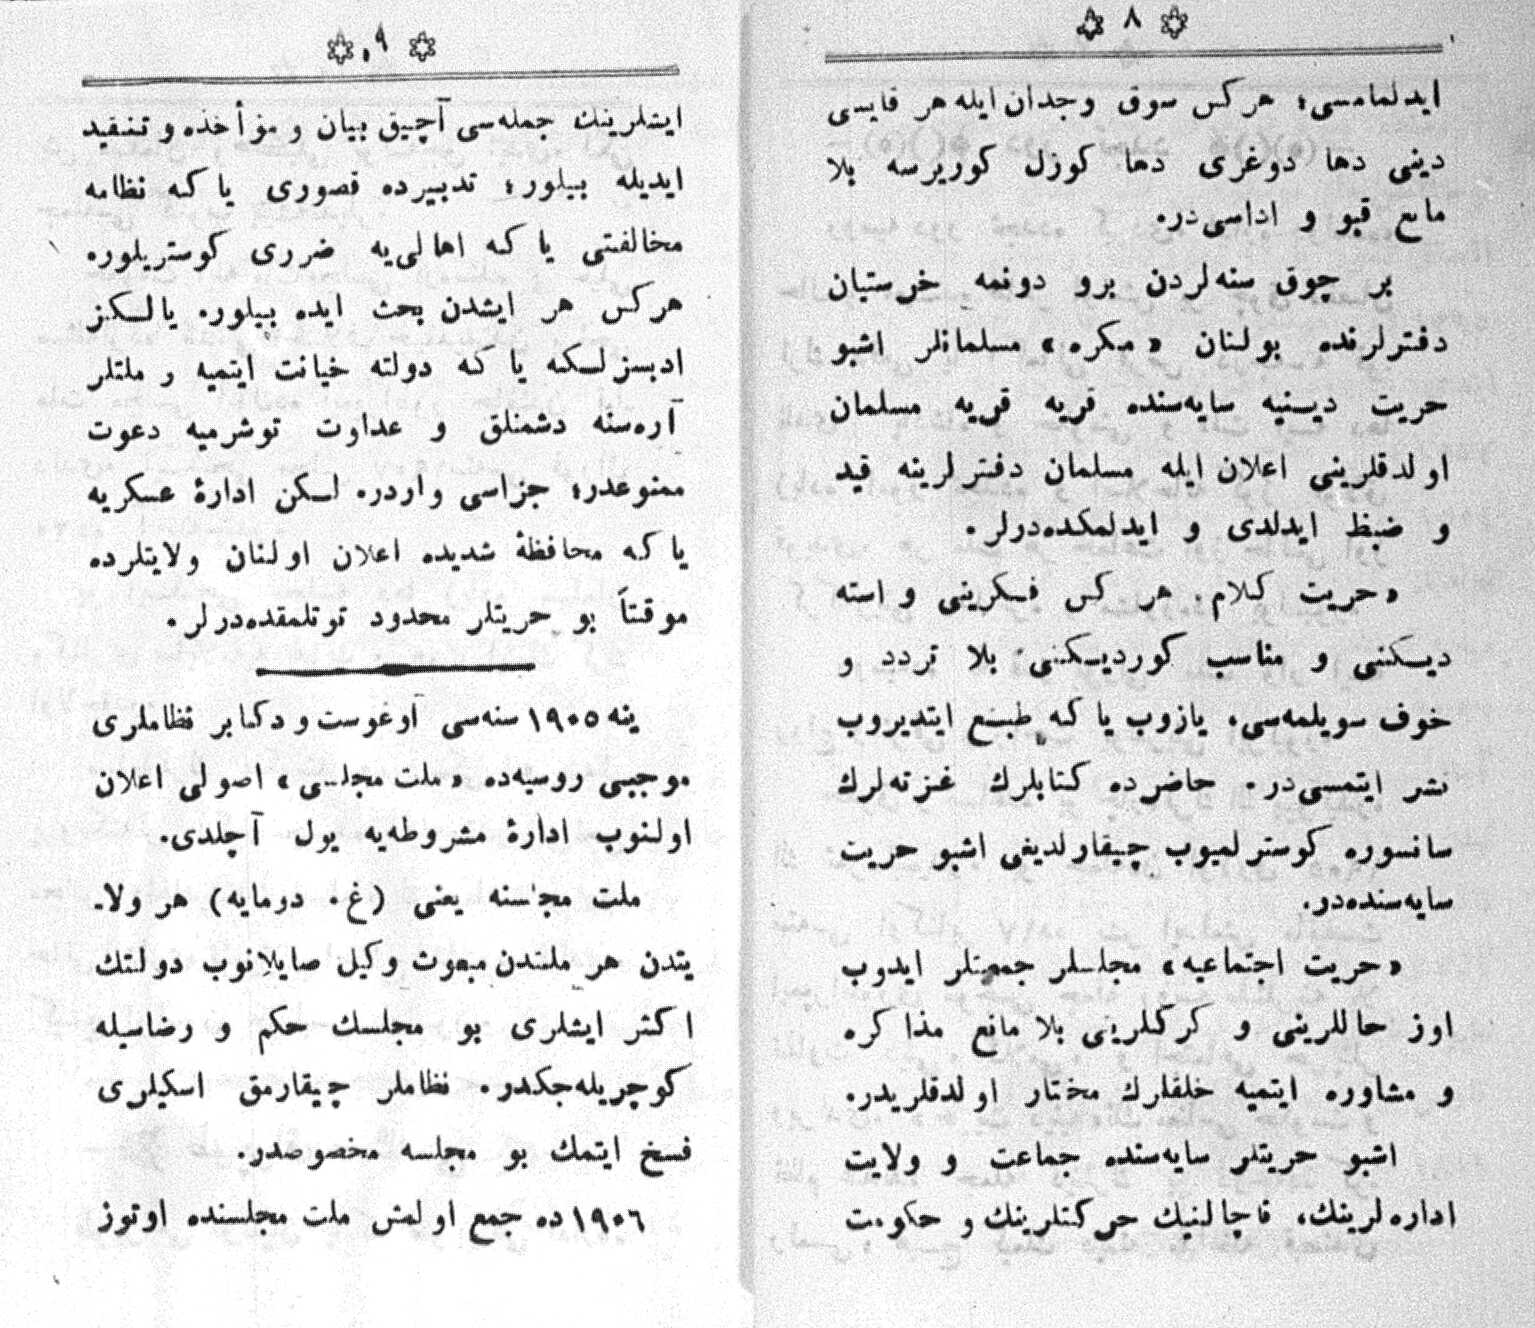 ٨
ايدلمامسى؛ هركس سوق وجدان ايله هر قايسى
دينى دها دوغرى دها كوزل كوريرسه بلا
مانع قبو و اداسى‌در.
بر چوق سنه‌لردن برو دونمه خرستيان
دفترلرنده بولنان «مكره» مسلمانلر اشبو
حريت دينيه سايه‌سنده قريه قريه مسلمان
اولدقلرينى اعلان ايله مسلمان دفترلرينه قيد
و ضبط ايدلدى و ايدلمكده‌درلر.
«حريت كلام. هر كس فكرينى و استه
ديكنى و مناسب كورديكنى بلا تردد و
خوف سويلمه‌سى. يازوب ياكه طبع ايتديروب
نشر ايتمسى‌در. حاضرده كتابلرك غزته‌لرك
سانسوره كوسترلميوب چيقارلديغى اشبو حريت
سايه‌سنده‌در.
«حريت اجتماعيه» مجلسلر جمعيتلر ايدوب
اوز حاللرينى و كركلرينى بلا مانع مذاكره
و مشاوره ايتميه خلقلرك مختار اولدقلريدر.
اشبو حريتلر سايه‌سنده جماعت و ولايت
اداره‌لرينك، قاچالنيك حركتلرينك و حكومت
٩
ايشلرينك جمله‌سى آچيق بيان و مؤأخذه و تنقيد
ايديله بيلور؛ تدبيرده قصورى ياكه نظامه
مخالفتى ياكه اهالى‌يه ضررى كوستريلور.
هركس هر ايشدن بحث ايده بيلور. يالكز
ادبسزلكه ياكه دولته خيانت ايتميه و ملتلر
آره‌سنه دشمنلق و عداوت توشرميه دعوت
ممنوعدر؛ جزاسى واردر. لكن ادارهٔ عسكريه
ياكه محافظهٔ شديده اعلان اولنان ولايتلرده
موقتاً بو حريتلر محدود توتلمقده‌درلر.
ينه ١٩٠٥ سنه‌سى آوغوست و دكابر نظاملرى
موجبى روسيه‌ده «ملت مجلسى» اصولى اعلان
اولنوب ادارهٔ مشروطه‌يه يول آچلدى.
ملت مجلسنه يعنى (غ. دومايه) هر ولا-
يتدن هر ملتدن مبعوث وكيل صايلانوب دولتك
اكثر ايشلرى بو مجلسك حكم و رضاسيله
كوچريله‌جكدر. نظاملر چيقارمق اسكيلرى
فسخ ايتمك بو مجلسه مخصوصدر.
١٩٠٦ ده جمع اولمش ملت مجلسنده اوتوز